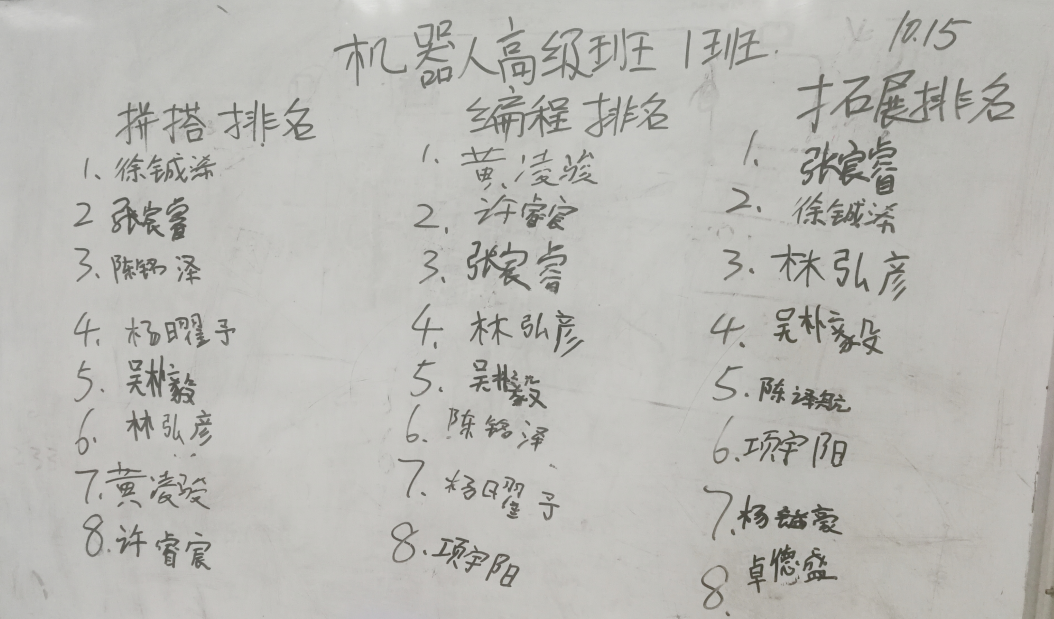 机器人高级班 1班.
10.15
拼搭排名
1、徐铖浠
2 张宸睿
3、陈铭泽
4、杨曜予
5、吴朴毅
6、林弘彦
7、黄凌骏
8、许睿宸
编程排名
1、黄凌骏
2、许睿宸
3、张宸睿
4、林弘彦
5、吴朴毅
6、陈铭泽
7、杨曜予
8、项宇阳
拓展排名
1、张宸睿
2、徐铖浠
3、林弘彦
4、吴朴毅
5、陈译航
6、项宇阳
7、杨豪
8、卓德盛